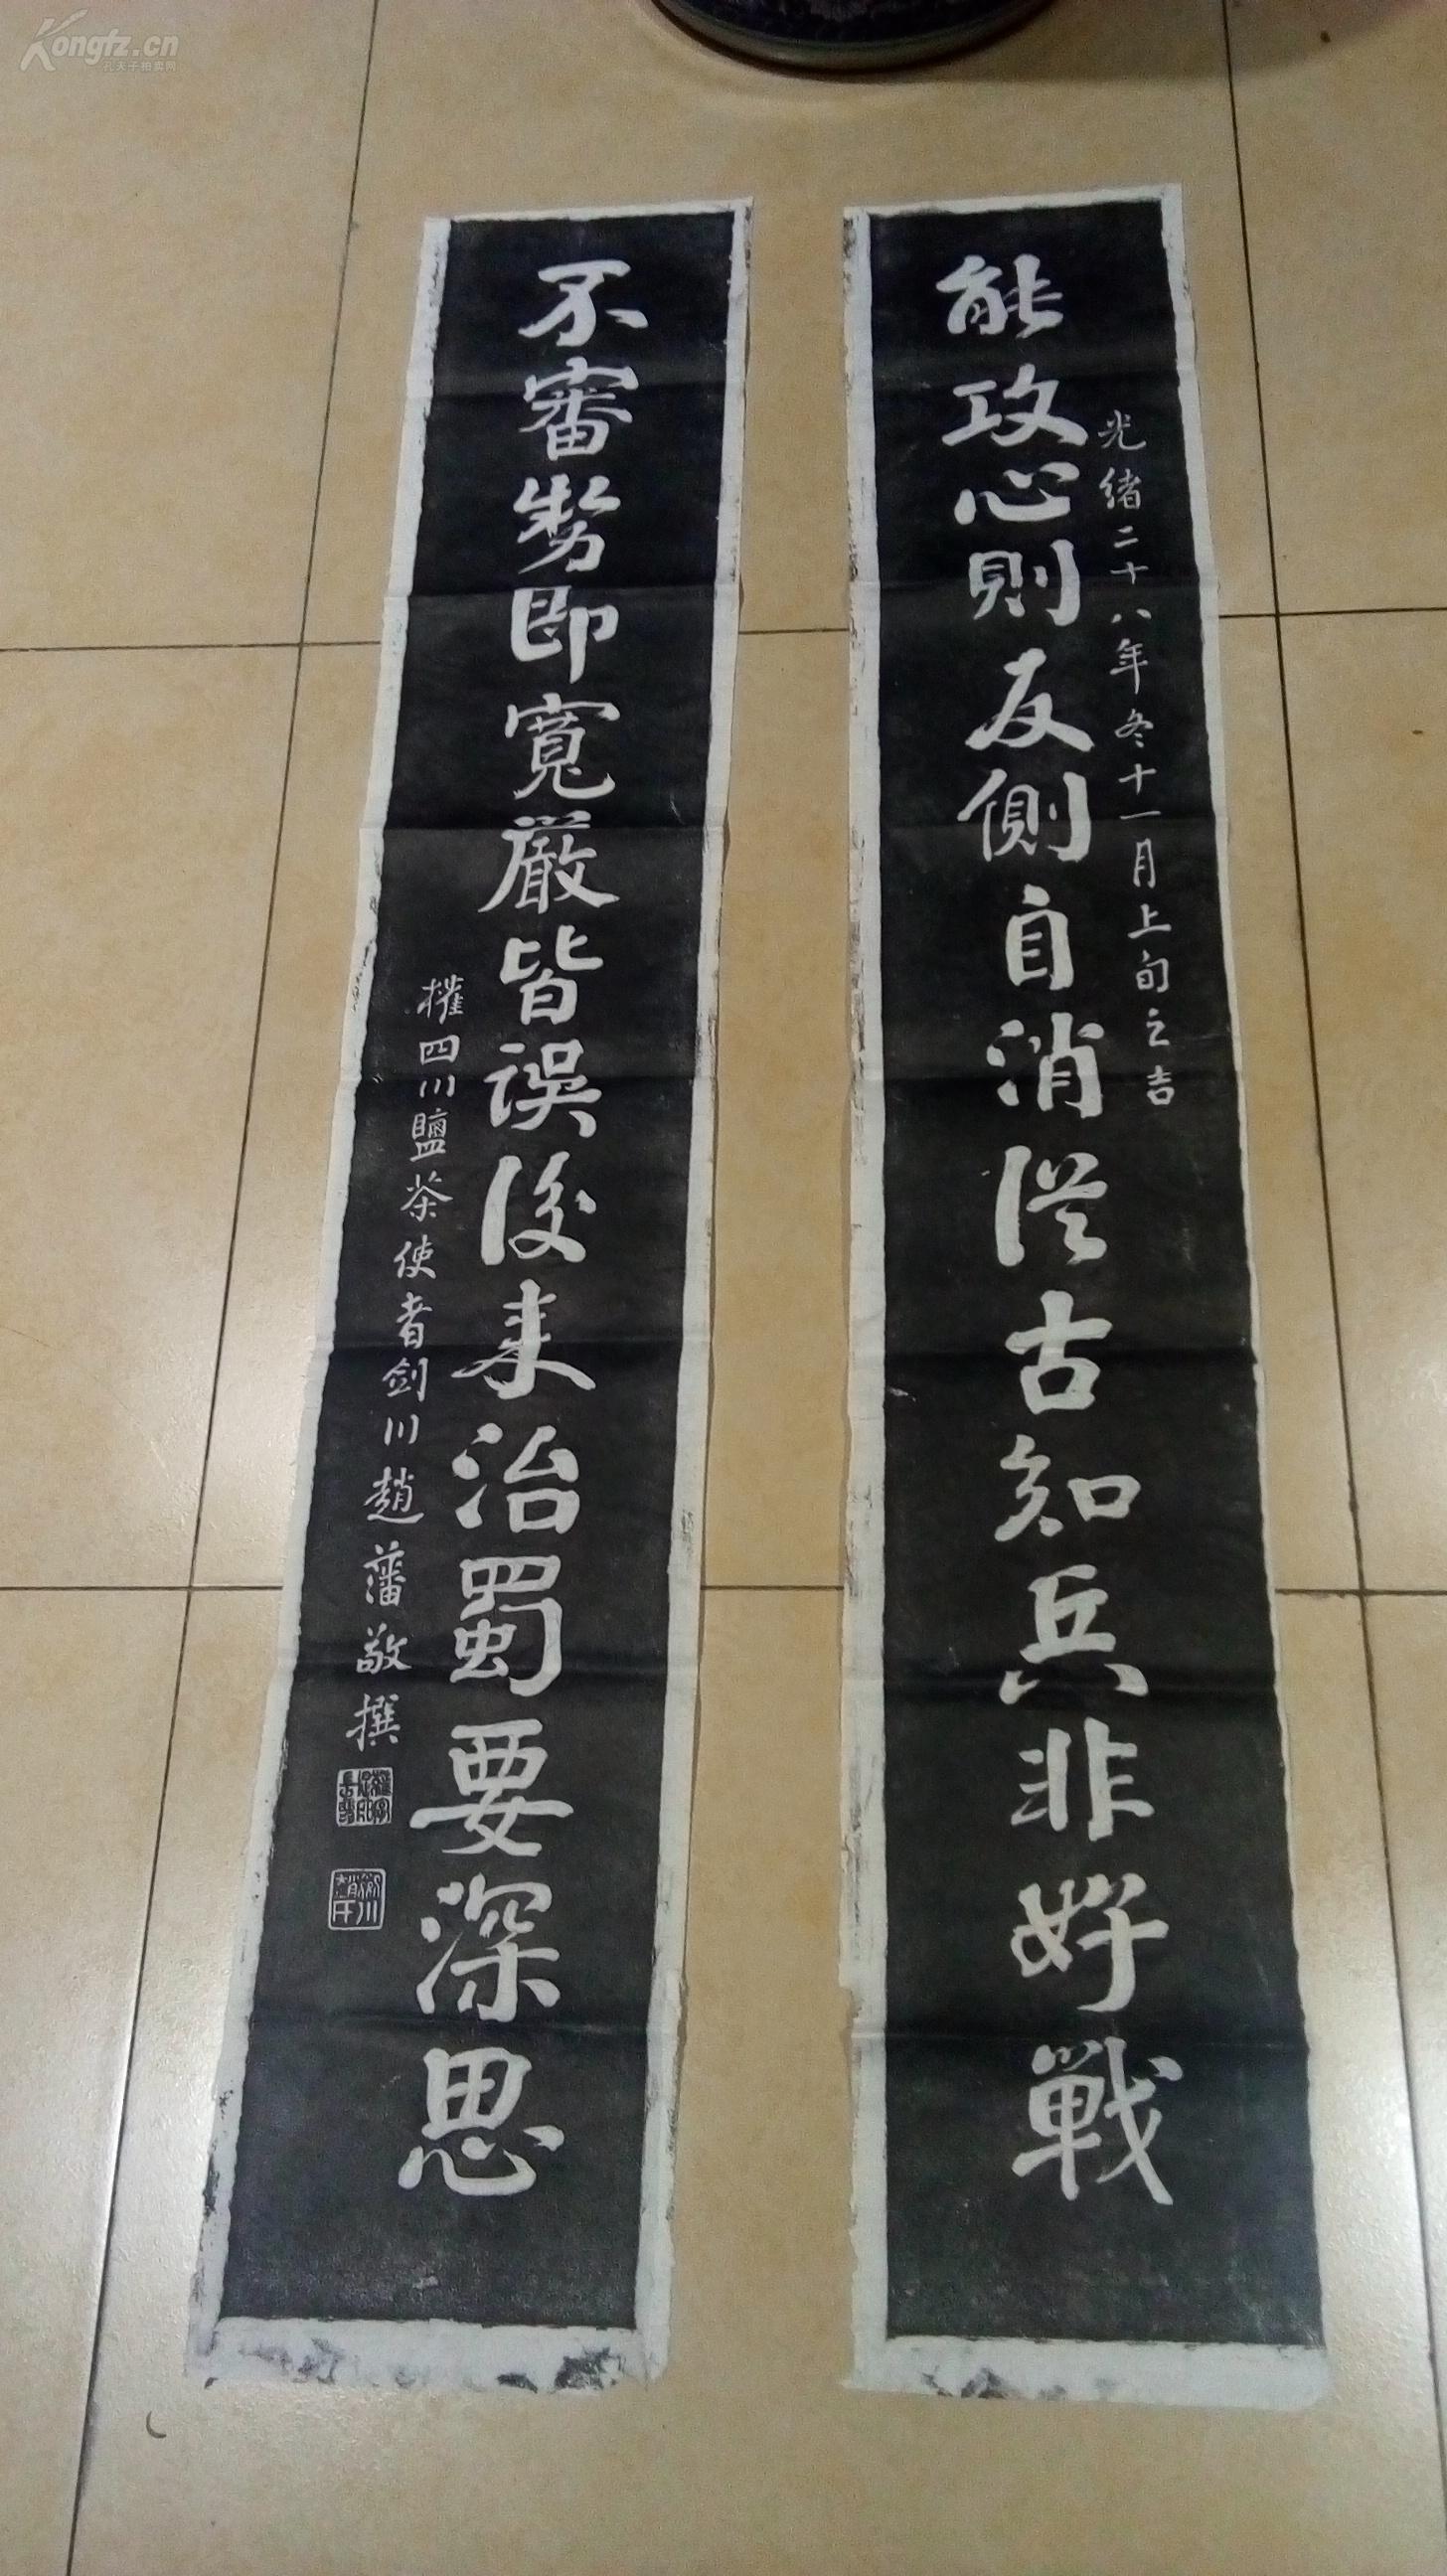 Kongfz.cn
孔夫子拍卖网
能攻心則反側自消從古知兵非好戰
光緒二十八年冬十一月上旬之吉
不審勢即寬嚴皆誤後来治蜀要深思
權四川鹽茶使者劍川趙藩敬撰